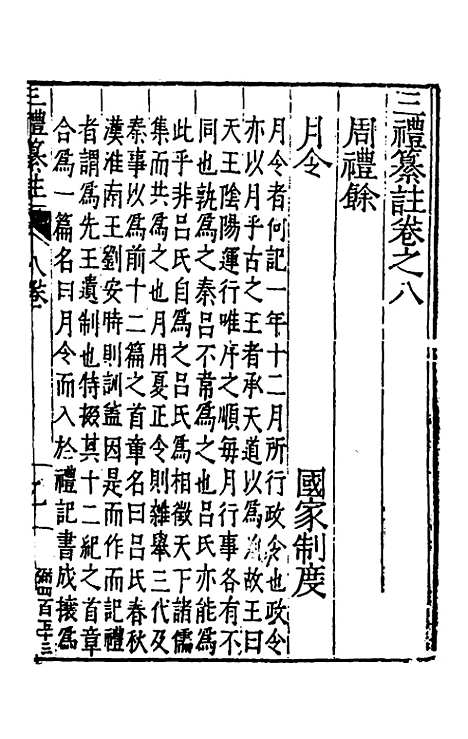 三禮纂註卷之八
周禮餘
月令　國家制度
月令者何記一年十二月所行政令也政令
亦以月乎古之王者承天道以爲治故王曰
天王陰陽運行唯序之順每月行事各有不
同也孰爲之秦呂不韋爲之也呂氏亦能爲
此乎非呂氏自爲之呂氏爲相徵天下諸儒
集而共爲之也月用夏正令則雜舉三代及
秦事以爲前十二篇之首章名曰呂氏春秋
漢淮南王劉安時則訓蓋因是而作而記禮
者謂爲先王遺制也特掇其十二紀之首章
合爲一篇名曰月令而入於禮記書成攘爲
三禮纂註 八卷 一